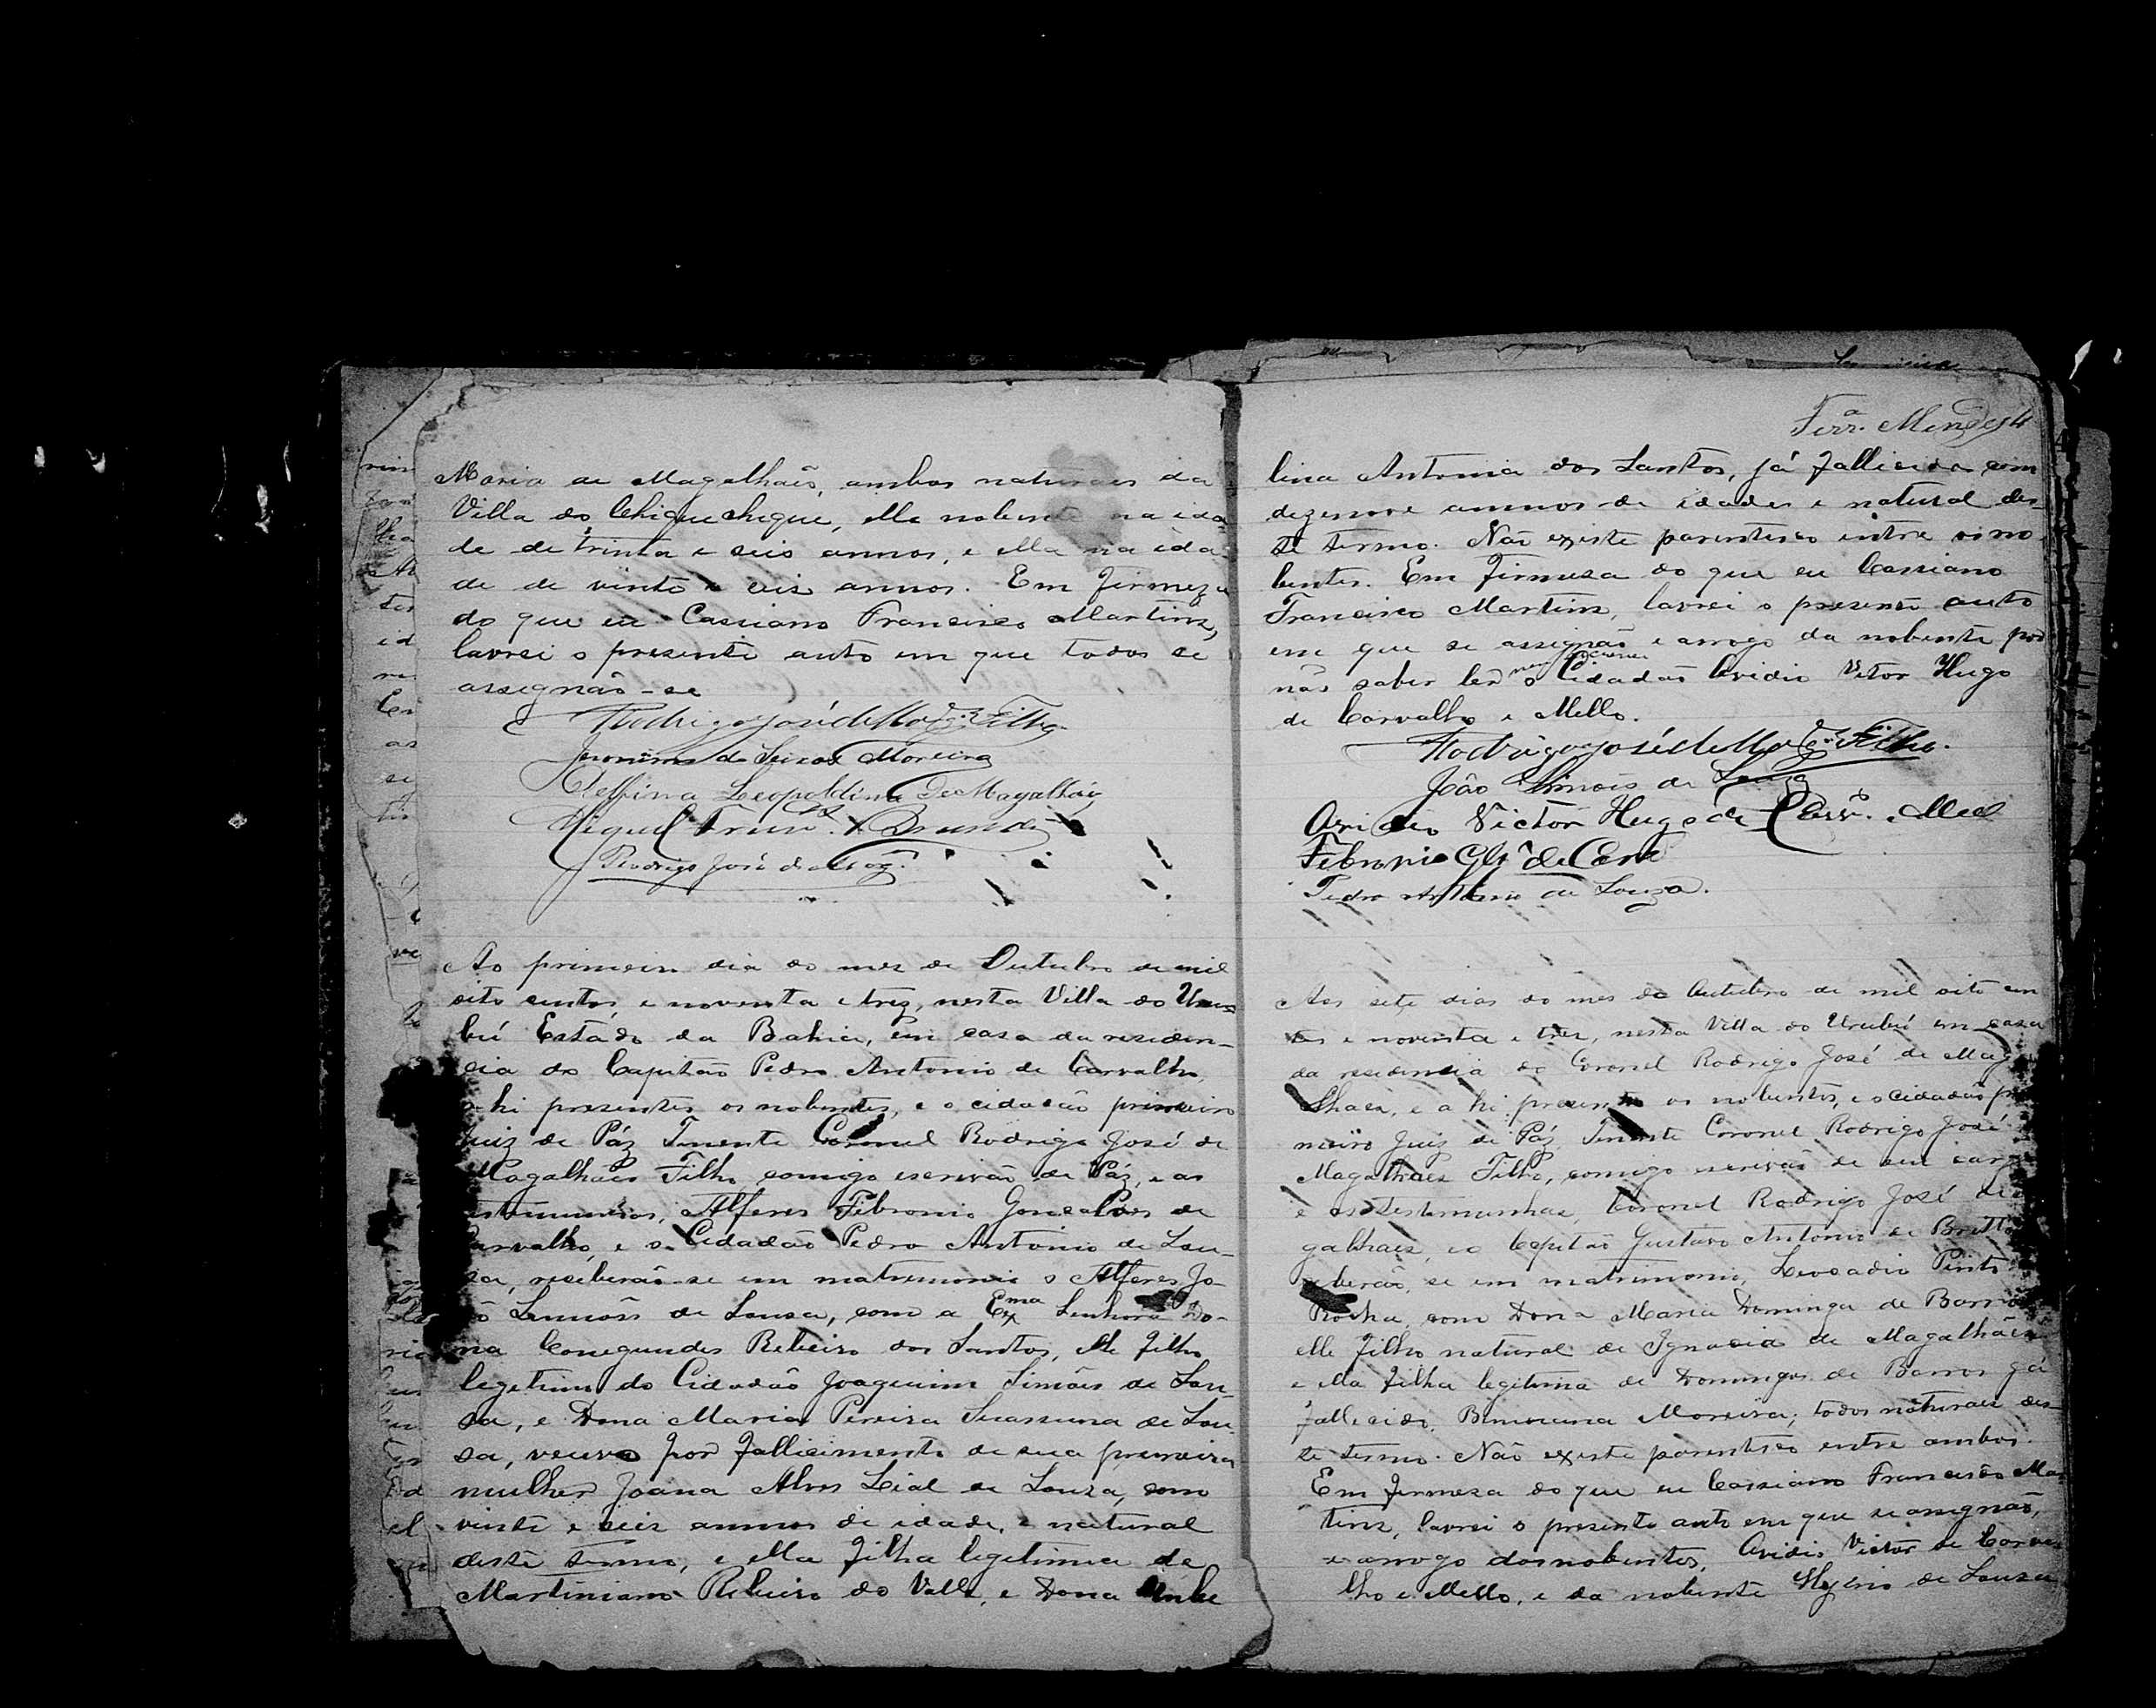 Maria de Magalhães, ambos naturaes da
Villa do Chique chique, elle nubente na ida
de de trinta e seis annos, e ella na ida
de de vinte e seis annos. Em firmeza
do que eu Cassiano Francisco Martins,
lavrei o presente auto em que todos se
assignão-se
Rodrigo José de Mag.es Filho
Jeronimo de Souza Moreira
Delfina Leopoldina de Magalhães
Miguel
Rodrigo José de Mag.es
Ao primeiro dia do mes de Outubro de mil
oito centos e noventa e trez, nesta Villa do Uru
bú Estado da Bahia, em casa da residen-
cia do Capitão Pedro Antonio de Carvalho,
ahi presentes os nubentes, e o cidadão primeiro
Juiz de Páz Tenente Coronel Rodrigo José de
Magalhães Filho, comigo escrivão de Páz, e as
testimunhas, Alferes Febronio Gonçalves de
Carvalho, e o Cidadão Pedro Antonio de Sou-
sa, receberão-se em matrimonio o Alferes Jo-
ão Simões de Sousa, com a Exma Senhora Do-
na Conegundes Ribeiro dos Santos, elle filho
legitimo do Cidadão Joaquim Simões de Sou-
sa, e Dona Maria Pereira Suassuna de Sou-
sa, veuvo por fallicimento de sua primeira
mulher Joana Alves Leal de Souza, com
vinte e seis annos de idade, e natural
deste termo, e ella filha legitima de
Martiniano Ribeiro do Valle, e Dona
Ferr.a Mendes 4
lina Antonia dos Santos, já fallicida com
dezenove annos de idade e natural des-
te termo. Não existe parentesco entre os nu
bentes. Em firmesa do que eu Cassiano
Francisco Martins, lavrei o presente auto
em que se assignão e arrogo da nubente por
não saber ler nem escrever o Cidadão Ovidio Vitor Hugo
de Carvalho e Mello.
Rodrigo José de Mag.es Filho.
João Simões de Souza
Ovidio Victor Hugo de Carv.o e Mello
Febronio Glz de Carv.o
Pedro Antonio de Souza.
Aos sete dias do mes de Outubro de mil oito cen
tos e noventa e tres, nesta Villa do Urubú em casa
da residencia do Coronel Rodrigo José de Maga
lhaes, e a hi presente os nubentes, e o cidadão pri
meiro Juiz de Páz Tenente Coronel Rodrigo José
Magalhães Filho, comigo escrivão de seu cargo
e as testimunhas, Coronel Rodrigo José de
galhaes, e o Capitão Gustavo Antonio de Britto
receberão se em matrimonio, Leocadio Pinto
Rocha, com Dona Maria Dominga de Barros
elle filho natural de Ignacia de Magalhães
e ella filha legitima de Domingos de Barros já
fallicido, Moreira; todos naturaes des
te termo. Não existe parentesco entre ambos.
Em firmesa do que eu Cassiano Francisco Mar
tins, lavrei o presente auto em que se assignão,
e arrogo dos nubentes, Ovidio Victor de Carva
lho e Mello, e da nubente Hygino de Souza